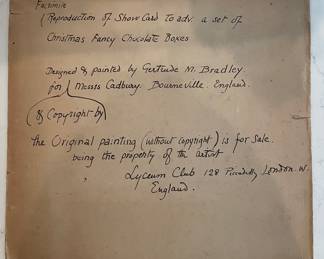 Facsimile
Reproduction of Show Card to adv. a set of
Christmas Fancy Chocolate Boxes
Designed & painted by Gertrude M. Bradley
for Messrs Cadbury. Bourneville. England.
& Copyright by
the Original painting (without copyright) is for sale.
being the property of the artist
" Lyceum Club 128 Piccadilly London. W.
England.